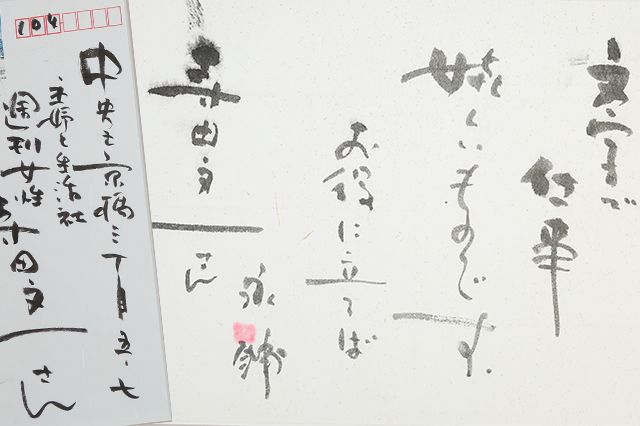 文字で
仕事
嬉しいものです。
お役に立てば
田文一
さん
永六輔
104
中央区京橋三丁目五・七
主婦と生活社
週刊女性
田文一さん